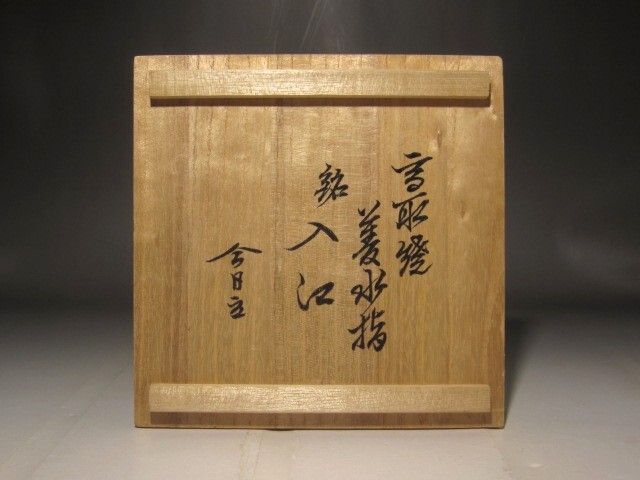 高取燒
菱水指
銘
入江
今日主